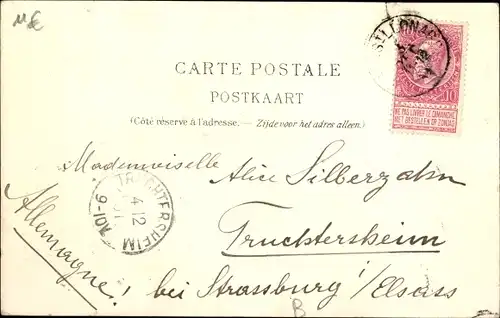 11 €
CARTE POSTALE
POSTKAART
(Côté réservé à l'adresse. — Zijde voor het adres alleen.)
10
NE PAS LIVRER LE DIMANCHE
NIET BESTELLEN OP ZONDAG
Mademoiselle Alice Silberzahn
TRUCHTERSHEIM
4 12
9-10V
Truchtersheim
Allemagne! bei Strassburg i/Elsass
B